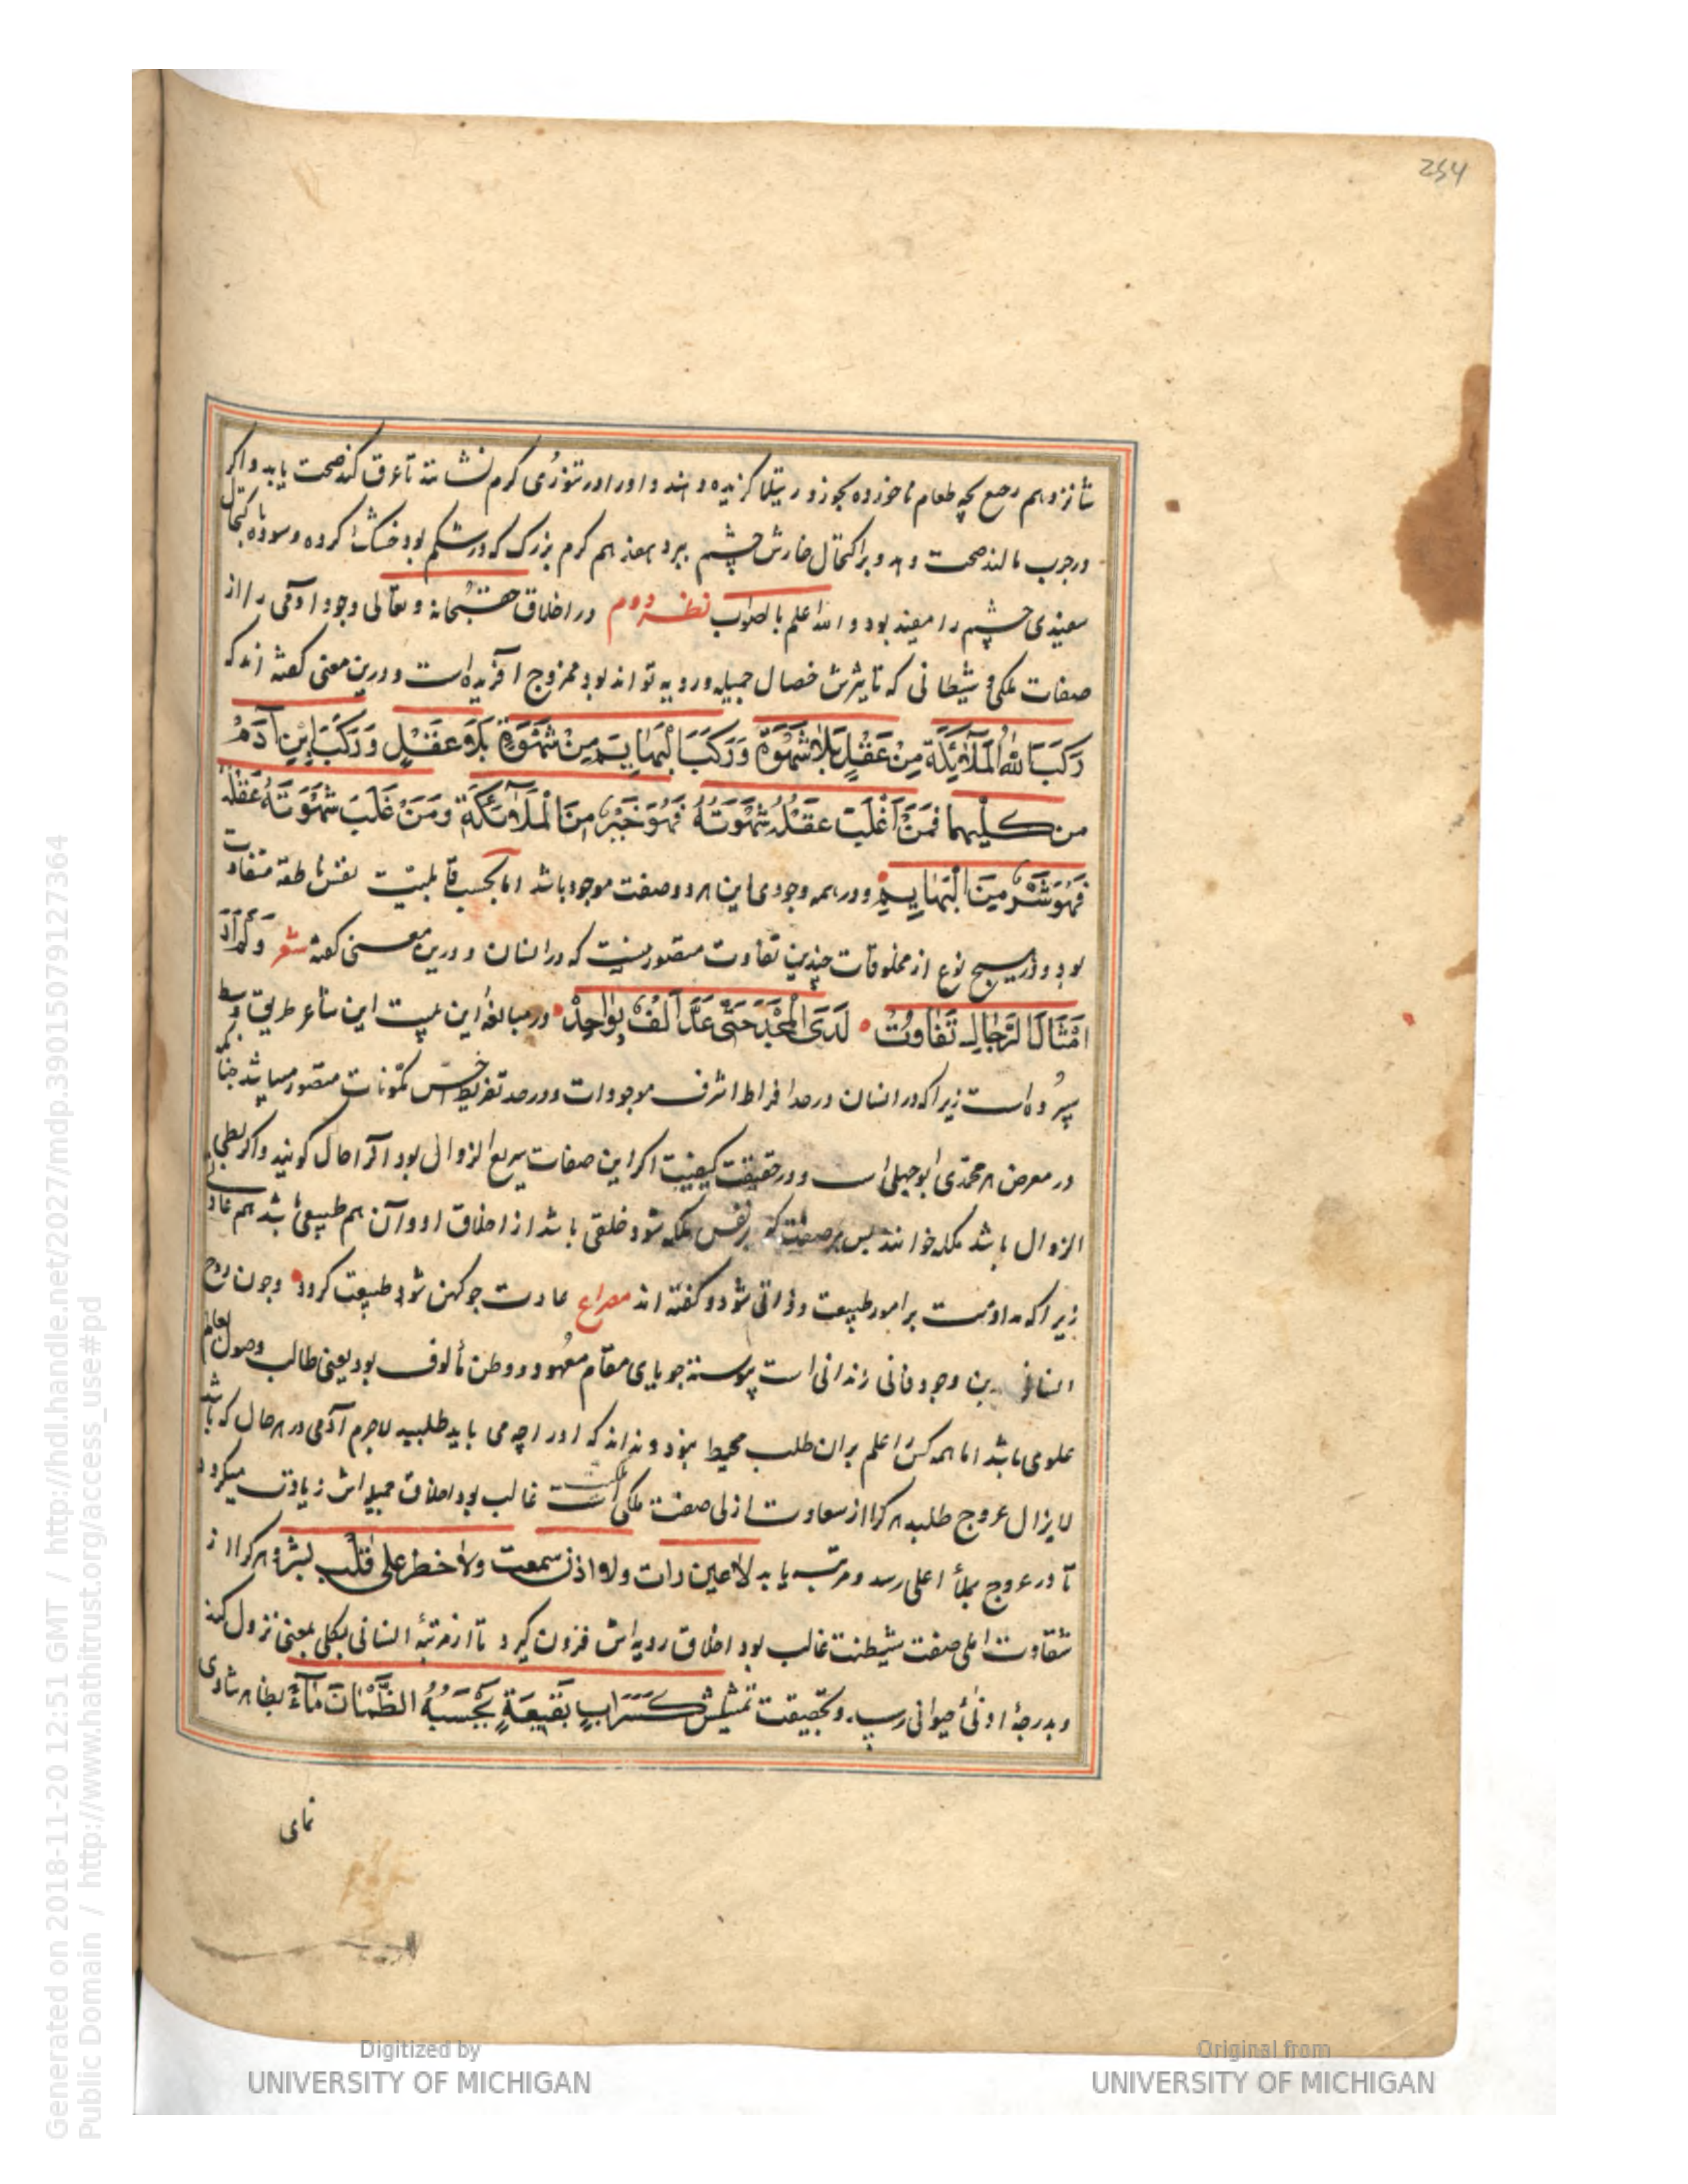 254
شانزدهم رجیع بچه طعام ناخورده بجوزد رتیلا گزیده دهند و او را در تنوری گرم نشانند تا عرق کند صحت یابد و اگر
در جرب مالند صحت دهد و بر اکتحال خارش چشم ببرد هفدهم کرم بزرگ که در شکم بود خشک کرده و سوده با کتحال
سفیدی چشم را مفید بود و الله اعلم بالصواب نظر دوم در اخلاق حق سبحانه و تعالی وجود آدمی را از
صفات ملکی و شیطانی که تاثیرش خصال جمیله و ردیه تواند بود ممزوج آفریده است و درین معنی گفته اند که
رَكَبَ اللهُ الْمَلَآئِكَةَ مِنْ عَقْلٍ بَلَا شَهْوَةٍ وَرَكَبَ الْبَهَايِمَ مِنْ شَهْوَةٍ بِلَا عَقْلٍ وَرَكَبَ ابْنِ آدَمَ
من كليهما فَمَنْ اغْلَبَ عَقْلُهُ شَهْوَتَهُ فَهُوَ خَيْرٌ مِنَ الْمَلَآئِكَةِ وَمَنْ غَلَبَ شَهْوَتَهُ عَقْلَهُ
فَهُوَ شَرٌّ مِنَ الْبَهَايِمِ و در همه وجودی این هر دو صفت موجود باشد اما بحسب قابلیت نفس ناطقه متفاوت
بود و در هیچ نوع از مخلوقات چندین تفاوت متصور نیست که در انسان و درین معنی گفته شعر وَلَمْ اَرَ
اَمْثَالَ الرِّجَالِ تَفَاوُتُ لَدَى الْمَجْدِ حَتّى عُدَّ اَلْفٌ بِوَاحِدْ در مبالغه این بیت این شاعر طریق وسط
سپرده است زیرا که در انسان در حد افراط اشرف موجودات و در حد تفریط اخس مکونات متصور میباشد چنانکه
در معرض هر محمدی ابوجهلی است و در حقیقت کیفیت اگر این صفات سریع الزوالی بود آنرا حال گویند و اگر بطی
الزوال باشد ملکه خوانند پس هر صفت که بر نفس ملکه شود خلقی باشد از اخلاق او و آن هم طبیعی باشد هم عادتی
زیرا که مداومت بر امور طبیعت و ذاتی شود و گفته اند مصراع عادت چو کهن شود طبیعت گردد و چون روح
انسانی درین وجود فانی زندانی است پیوسته جویای مقام معهود و وطن مألوف بود یعنی طالب وصول بعالم
علوی باشد اما همه کس را علم بران طلب محیط نبود و نداند که او را چه می باید طلبید لاجرم آدمی در هر حال که باشد
لایزال عروج طلبد هر کرا از سعادت ازلی صفت ملکی غالب بود اخلاق جمیله اش زیادت میگردد
تا در عروج بملأ اعلی رسد و مرتبه یابد لاعین رات ولا اذن سمعت ولا خطر علی قلب بشر و هر کرا از
شقاوت صفت شیطنت غالب بود اخلاق ردیه اش فزون گیرد تا از مرتبهٔ انسانی بکلی بمعنی نزول کند
و بدرجهٔ ادنی حیوانی رسد و بحقیقت تمثیلش كَسَرَابٍ بَقِيعَةٍ يَحْسَبُهُ الظَّمْانَ مَآءً بظاهر شادی
نمای